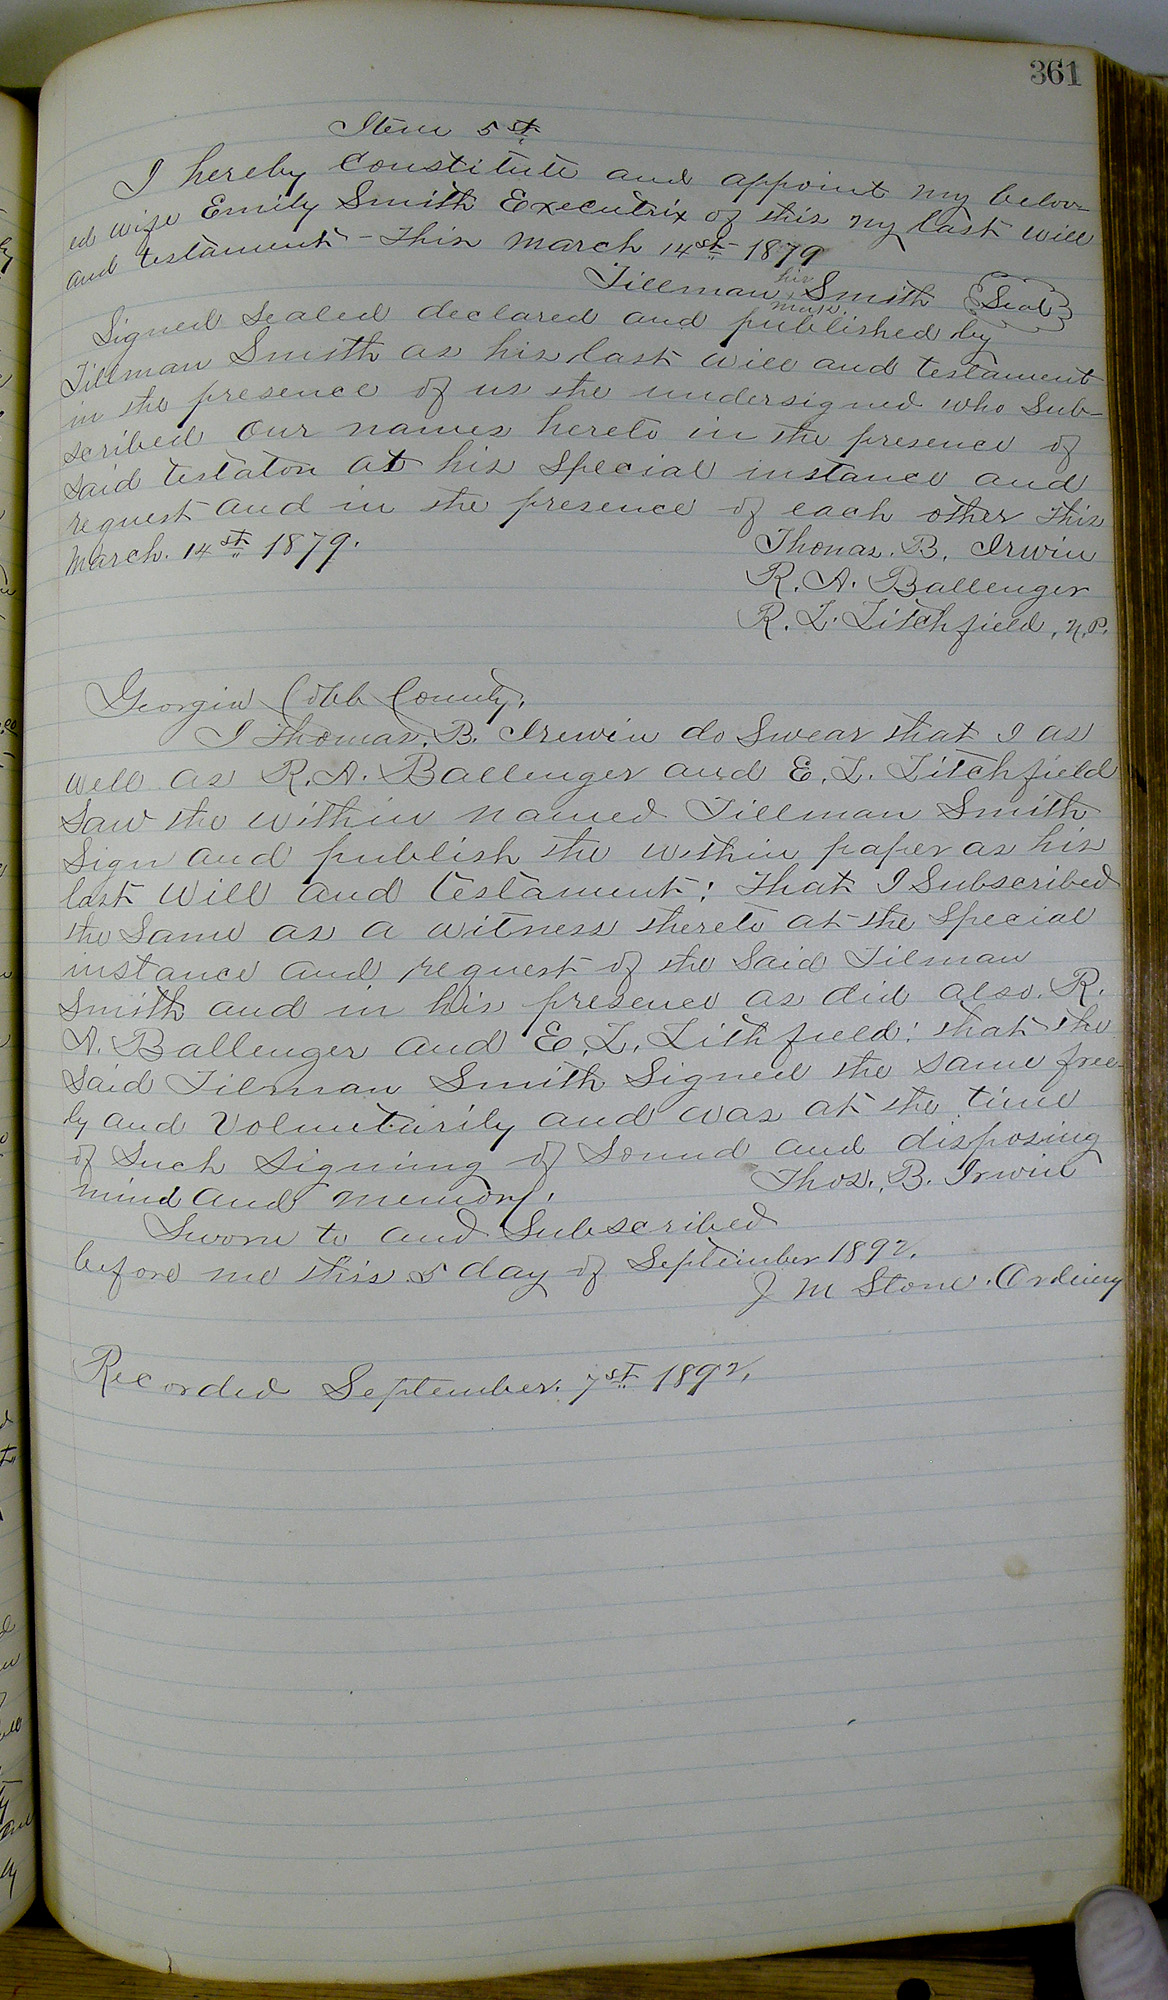 361
Item 5st
I hereby constitute and appoint my belov-
ed wife Emily Smith Executrix of this my last will
and testament - This March 14st 1879
his
Tillman Smith Seal
mark
Signed sealed declared and published by
Tillman Smith as his last will and testament
in the presence of us the undersigned who Sub-
scribed our names hereto in the presence of
said testator at his special instance and
request and in the presence of each other this
March. 14st 1879.
Thomas. B. Irwin
R. A. Ballenger
R. L. Litchfield, N.P.
Georgia Cobb County.
I Thomas. B. Irewin do Swear that I as
well as R. A. Ballenger and E. L. Litchfield
Saw the within named Tillman Smith
Sign and publish the within paper as his
last Will and testament; that I Subscribed
the Same as a witness thereto at the Special
instance and request of the Said Tilman
Smith and in his presence as did also. R.
A. Ballenger and E. L. Lithfield; that the
Said Tilman Smith Signed the same free-
ly and Voluntarily and was at the time
of Such Signing of Sound and disposing
mind and memory.
Thos. B. Irwin
Sworn to and Subscribed
before me this 5 day of September 1892.
J M Stone. Ordinary
Recorded September. 7st 1892.